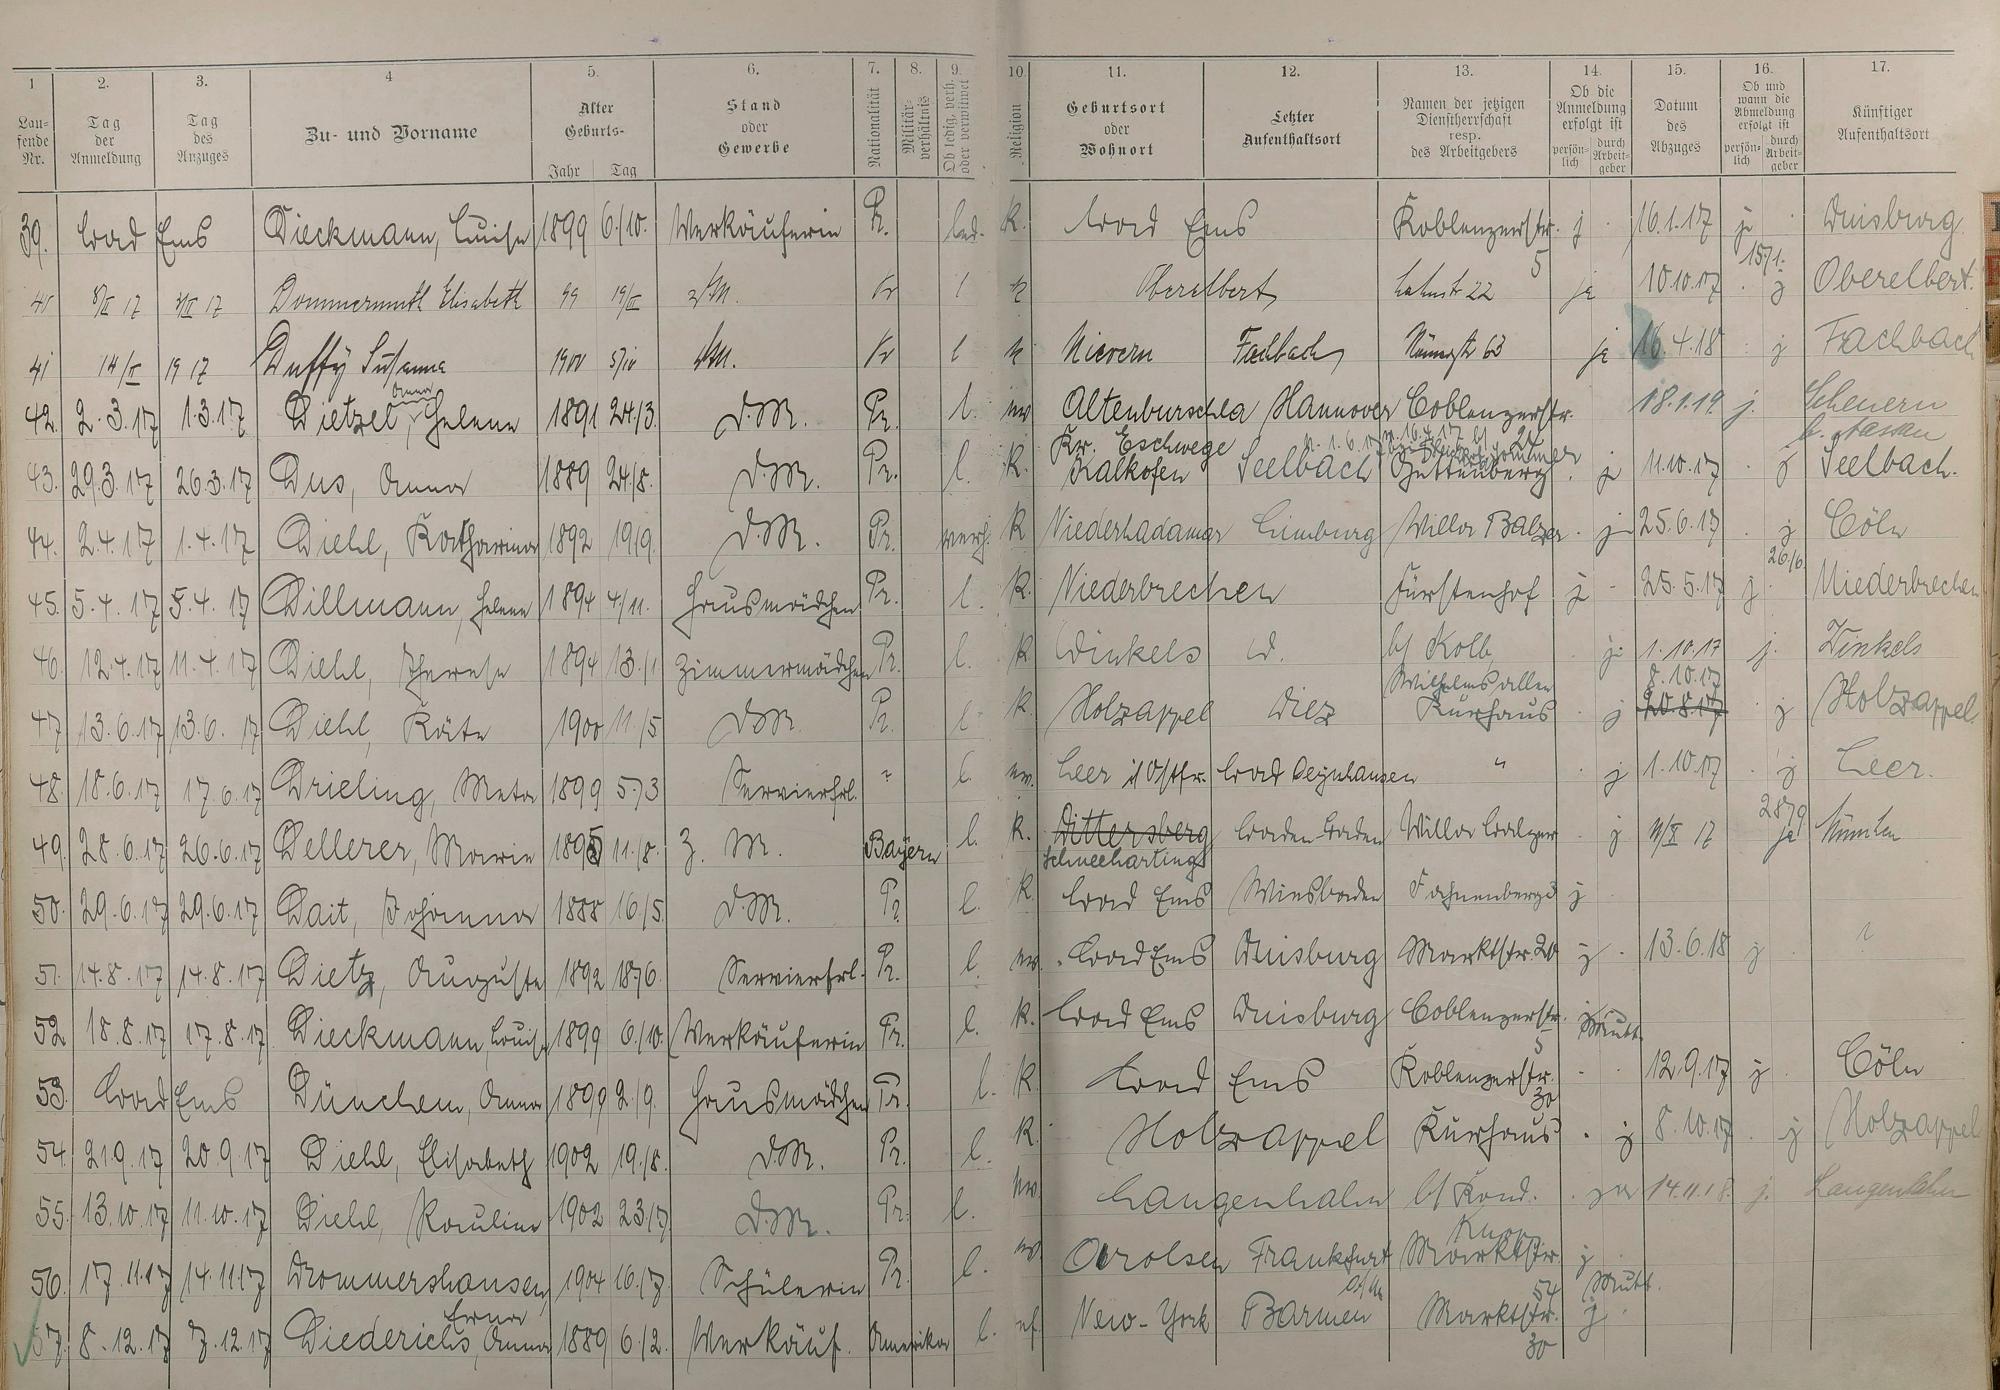 1 2. 3. 4 5. 6. 7. 8. 9. 10. 11. 12. 13. 14. 15. 16. 17.
Laufende Nr. Tag der Anmeldung Tag des Anzuges Zu- und Vorname Alter Geburts- Jahr Tag Stand oder Gewerbe Nationalität Militärverhältnis Ob ledig, verh. oder verwitwet Religion Geburtsort oder Wohnort Letzter Aufenthaltsort Namen der jetzigen Dienstherrschaft resp. des Arbeitgebers Ob die Anmeldung erfolgt ist persönlich durch Arbeitgeber Datum des Abzuges Ob und wann die Abmeldung erfolgt ist persönlich durch Arbeitgeber Künftiger Aufenthaltsort
39. Bad Ems Dieckmann, Luise 1899 6/10. Verkäuferin Pr. led. k. Bad Ems Koblenzerstr. 5 j 16.1.17 j Duisburg
15/1.
8/II 17 Dommermuth Elisabeth 99 19/II Pr l k Oberelbert Lahnstr 22 ja 10.10.17 j Oberelbert.
41 14/II 19 17 Duffy Susanna 1900 5/10 Pr l k Nievern Fachbach 63 ja 16.4.18 j Fachbach
42. 2.3.17 1.3.17 Dietzel, Anna Helene 1891 24/3. D.M. Pr. l. ev. Altenburschla Kr. Eschwege Hannover Coblenzerstr. 24 18.1.19 j. Scheuern b. Nassau
43. 29.3.17 26.3.17 Dus, Anna 1889 24/8. D.M. Pr. l. k. Kalkofen Seelbach Guttenberg j 11.10.17 j Seelbach.
44. 2.4.17 1.4.17 Diehl, Katharina 1892 19/9. D.M. Pr. verh. k Niederhadamar Limburg Villa Balzer j 25.6.17 j Cöln
26/6.
45. 5.4.17 5.4.17 Dillmann, Helene 1894 4/11. Hausmädchen Pr. l. k. Niederbrechen Fürstenhof j 25.5.17 j. Niederbrechen
46. 12.4.17 11.4.17 Diehl, Therese 1894 13./1 Zimmermädchen Pr. l. k Winkels W. b/ Kolb, Wilhelmsallee j. 1.10.17 j. Winkels
8.10.17
47 13.6.17 13.6.17 Diehl, Käte 1900 11/5 DM. Pr. l k. Holzappel Diez Kurhaus j 20.8.17 j Holzappel
48. 18.6.17 17.6.17 Drieling, Meta 1899 5./3 Servierfrl. " l. ev. Leer i/ Ostfr. Bad Oeynhausen " j 1.10.17 j Leer.
28/9
49. 28.6.17 26.6.17 Dellerer, Marie 1895 11/8. Z. M. Bayern l. k. Dittersberg Schneeharting Baden-Baden Villa Balzer j 17 ja München
50. 29.6.17 29.6.17 Dait, Johanna 1888 16/5. D.M. Pr. l. k. Bad Ems Wiesbaden Fahnenberg j
51. 14.8.17 14.8.17 Dietz, Auguste 1892 18/6. Servierfrl. Pr. l. ev. Bad Ems Duisburg Marktstr. 20 j 13.6.18 j
52 18.8.17 17.8.17 Dieckmann, Luise 1899 6/10. Verkäuferin Pr. l. k. Bad Ems Duisburg Coblenzerstr. 5 j Mutt.
53. Bad Ems Dünchem, Anna 1899 2/9. Hausmädchen Pr. l. k. Bad Ems Koblenzerstr. 30 12.9.17 j Cöln
54. 21.9.17 20.9.17 Diehl, Elisabeth 1902 19./8. D.M. Pr. l. k. Holzappel Kurhaus j 8.10.17 j Holzappel
55. 13.10.17 11.10.17 Diehl, Pauline 1902 23/7. D.M. Pr. l. ev. Langenhahn b/ Kond. Knopp ja 14.11.18. j. Langenhahn
56. 17.11.17 14.11.17 Drommershausen, Erna 1904 16./7. Schülerin Pr. l. ev Arolsen Frankfurt a/M Marktstr. 54 j Mutt.
57. 8.12.17 7.12.17 Diederichs, Anna 1889 6./2. Verkäuf. Amerika l. ref. New-York Barmen Marktstr. 30 j